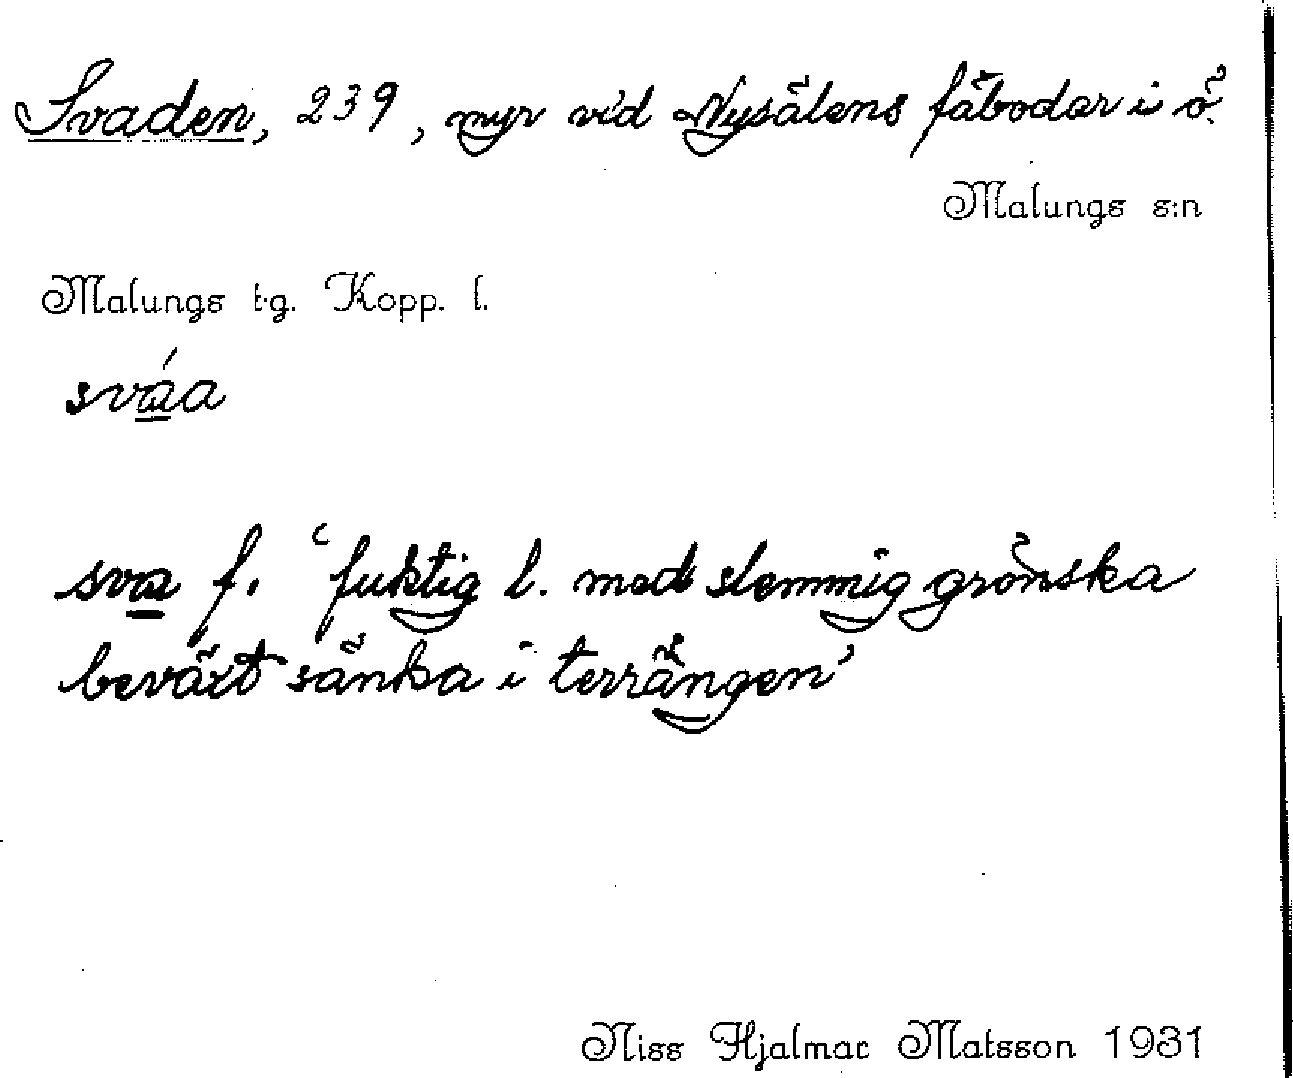 Svaden, 239, myr vid Nysälens fäbodar i ö.
Malungs s:n
Malungs t.g. Kopp. l.
sváa
sva f. ‘fuktig l. med slemmig grönska
beväxt sänka i terrängen’
Niss Hjalmar Matsson 1931